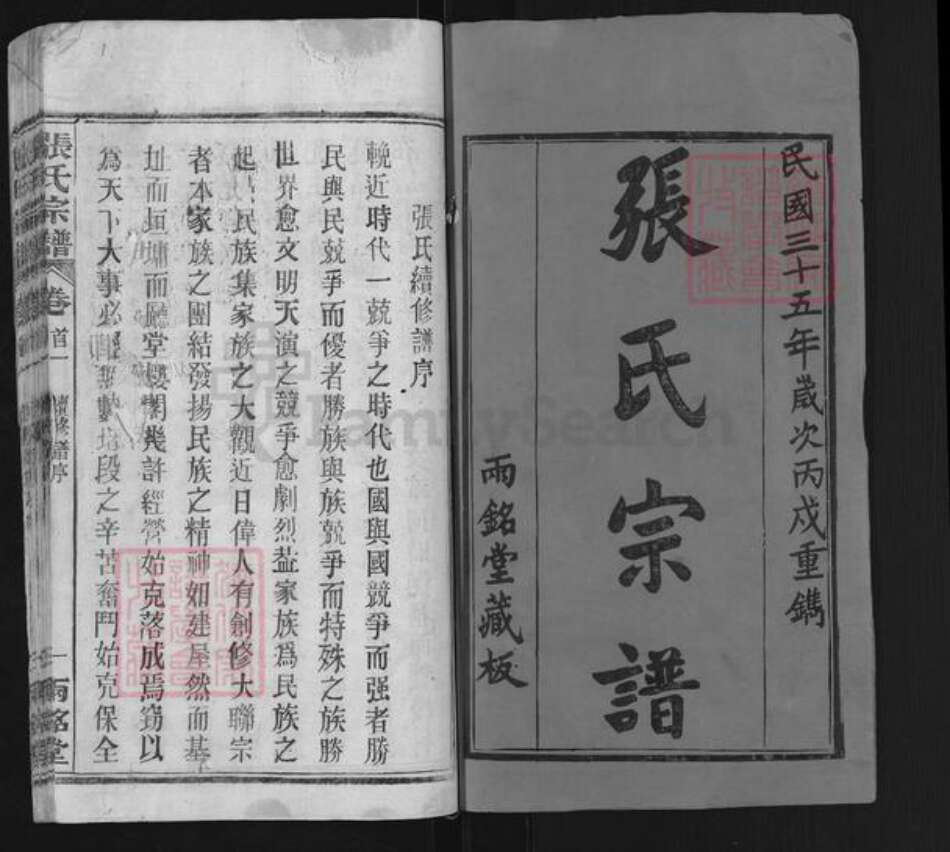 民國三十五年歲次丙戌重鐫
張氏宗譜
兩銘堂藏板
張氏續修譜序
輓近時代一競爭之時代也國與國競爭而强者勝
民與民競爭而優者勝族與族競爭而特殊之族勝
世界愈文明天演之競爭愈劇烈葢家族爲民族之
起民族集家族之大觀近日偉人有創修大聯宗
者本家族之團結發揚民族之精神如建屋然而基
址而垣墉而廳堂樓閣幾許經營始克落成焉竊以
爲天下大事必經無數境段之辛苦奮鬥始克保全
張氏宗譜 卷首一 續修譜序 一 兩銘堂
FamilySearch